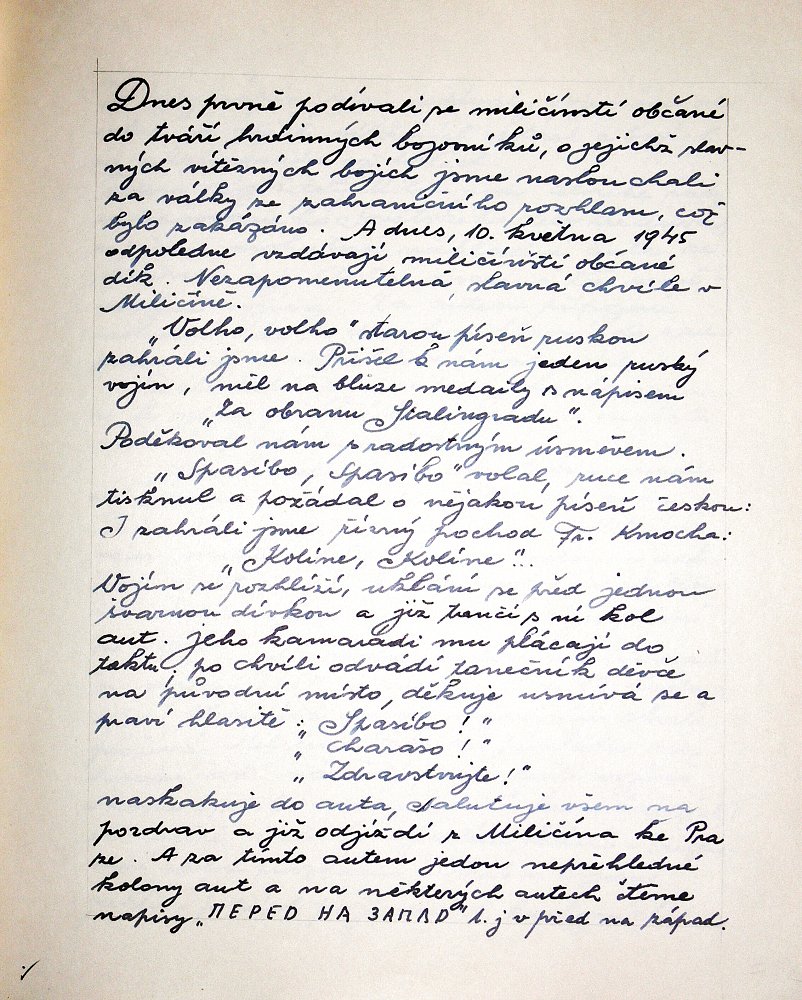 Dnes prvně podívali se miličínstí občané
do tváří hrdinných bojovníků, o jejichž slav-
ných vítězných bojích jsme naslouchali
za války ze zahraničního rozhlasu, což
bylo zakázáno. A dnes, 10. května 1945
odpoledne vzdávají miličínští občané
dík. Nezapomenutelná, slavná chvíle v
Miličíně.
"Volho, volho" starou píseň ruskou
zahráli jsme. Přišel k nám jeden ruský
vojín, měl na blůze medaily s nápisem
"Za obranu Stalingradu".
Poděkoval nám s radostným úsměvem.
"Spasibo, Spasibo" volal, ruce nám
tisknul a požádal o nějakou píseň českou:
I zahráli jsme řízný pochod Fr. Kmocha:
"Kolíne, Kolíne"..
Vojín se rozhlíží, uklání se před jednou
švarnou dívkou a již tančí s ní kol
aut. Jeho kamarádi mu plácají do
taktu, po chvíli odvádí tanečník děvče
na původní místo, děkuje usmívá se a
praví hlasitě: "Spasíbo!"
"Charašo!"
"Zdravstvujte!"
naskakuje do auta, salutuje všem na
pozdrav a již odjíždí z Miličína ku Pra
ze. A za tímto autem jedou nepřehledné
kolony aut a na některých autech čteme
napisy "ПЕРЕД НА ЗАПАД" t.j v před na západ.